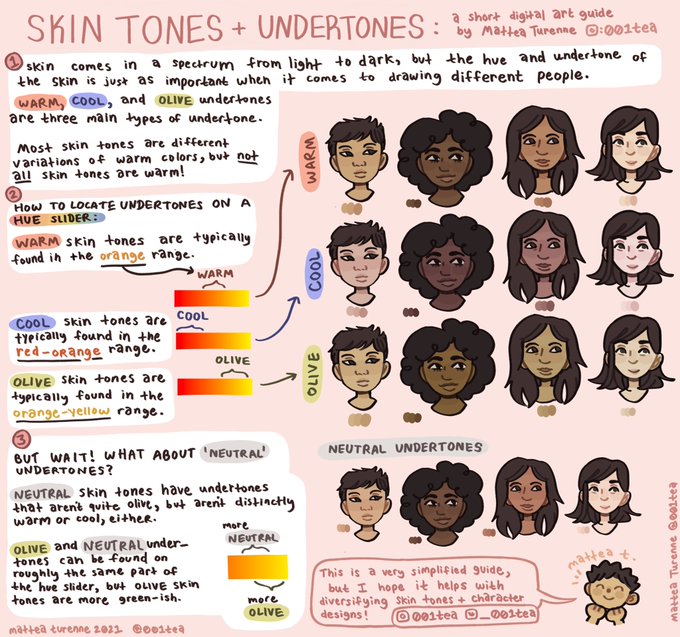 SKIN TONES + UNDERTONES: a short digital art guide
by Mattea Turenne @:001tea
1 skin comes in a spectrum from light to dark, but the hue and undertone of
the skin is just as important when it comes to drawing different people.
WARM, COOL, and OLIVE undertones
are three main types of undertone.
Most skin tones are different
variations of warm colors, but not
all skin tones are warm!
2
HOW TO LOCATE UNDERTONES ON A
HUE SLIDER:
WARM skin tones are typically
found in the orange range.
WARM
COOL
COOL skin tones are
typically found in the
red-orange range.
OLIVE
OLIVE skin tones are
typically found in the
orange-yellow range.
WARM
COOL
OLIVE
3
BUT WAIT! WHAT ABOUT 'NEUTRAL'
UNDERTONES?
NEUTRAL skin tones have undertones
that aren't quite olive, but aren't distinctly
warm or cool, either.
OLIVE and NEUTRAL under-
tones can be found on
roughly the same part of
the hue slider, but OLIVE skin
tones are more green-ish.
more
NEUTRAL
more
OLIVE
NEUTRAL UNDERTONES
This is a very simplified guide,
but I hope it helps with
diversifying skin tones + character
designs! @001tea @_001tea
mattea t.
mattea turenne 2021 @001tea
Mattea Turenne @001tea